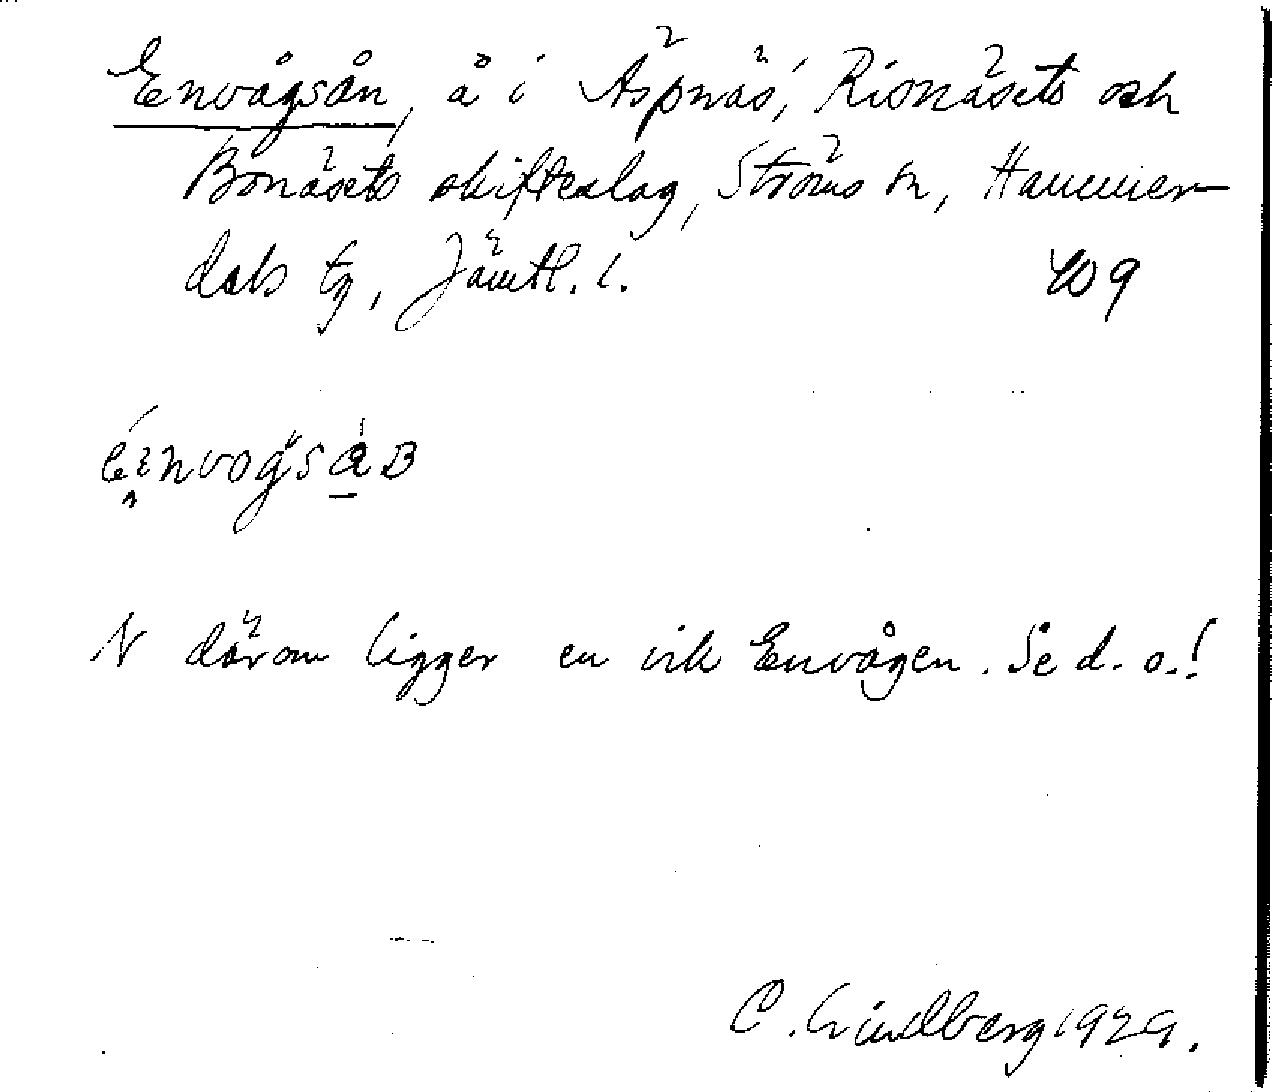 Envågsån, å i Äspnäs, Risnäsets och
Bonäsets skifteslag, Ströms sn, Hammer-
dals tg, Jämtl. l. 409
N därom ligger en vik Envågen. Se d. o.!
C. Lindberg 1929.